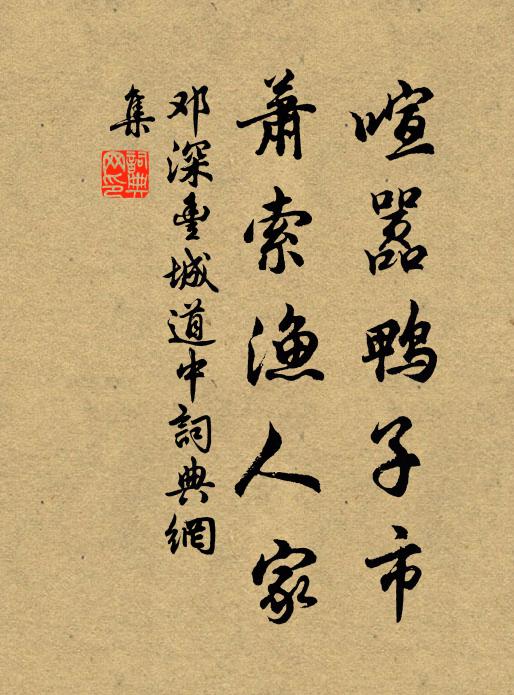 喧嚣鸭子市
萧索渔人家
邓深豊城道中詞典網
集
詞典
网印